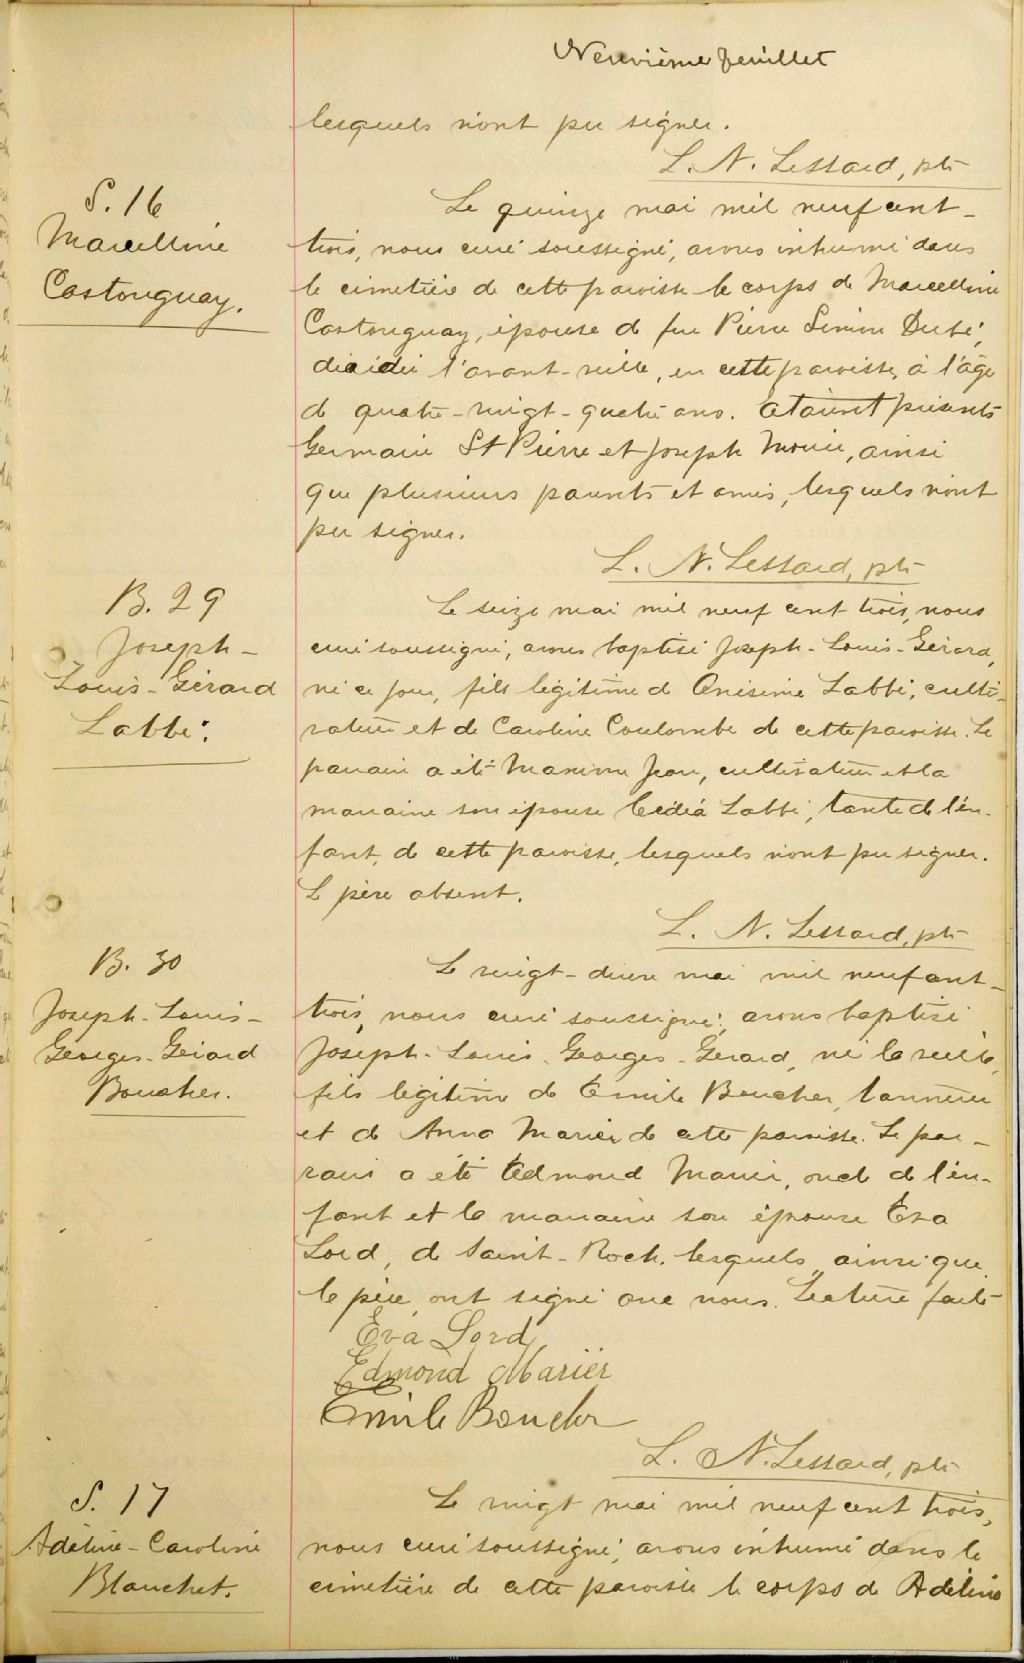 Neuvième feuillet
lesquels n'ont pu signer.
L. N. Lessard, ptr
S. 16
Marcelline
Castonguay.
Le quinze mai mil neuf cent-
trois, nous curé soussigné, avons inhumé dans
le cimetière de cette paroisse le corps de Marcelline
Castonguay, épouse de feu Pierre Simon Dubé,
décédée l'avant-veille, en cette paroisse, à l'âge
de quatre-vingt-quatre ans. Etaient présents
Germain St Pierre et Joseph Morin, ainsi
que plusieurs parents et amis, lesquels n'ont
pu signer.
L. N. Lessard, ptr
B. 29
Joseph-
Louis-Gérard
Labbé.
Le seize mai mil neuf cent trois, nous
curé soussigné, avons baptisé Joseph-Louis-Gérard,
né ce jour, fils légitime d'Onésime Labbé, culti-
vateur et de Caroline Coulombe de cette paroisse. Le
parrain a été Maxime Jean, cultivateur et la
marraine son épouse Elédia Labbé, tante de l'en-
fant, de cette paroisse, lesquels n'ont pu signer.
Le père absent.
L. N. Lessard, ptr
B. 30
Joseph-Louis-
Georges-Gérard
Boucher.
Le vingt-deux mai mil neuf cent-
trois, nous curé soussigné, avons baptisé
Joseph-Louis-Georges-Gérard, né la veille,
fils légitime de Emile Boucher, tanneur
et de Anna Marier de cette paroisse. Le par-
rain a été Edmond Marier, oncle de l'en-
fant et la marraine son épouse Eva
Lord, de Saint-Roch, lesquels, ainsi que
le père, ont signé avec nous. Lecture faite
Eva Lord
Edmond Marier
Emile Boucher
L. N. Lessard, ptr
S. 17
Adéline-Caroline
Blanchet.
Le vingt mai mil neuf cent trois,
nous curé soussigné, avons inhumé dans le
cimetière de cette paroisse le corps de Adéline